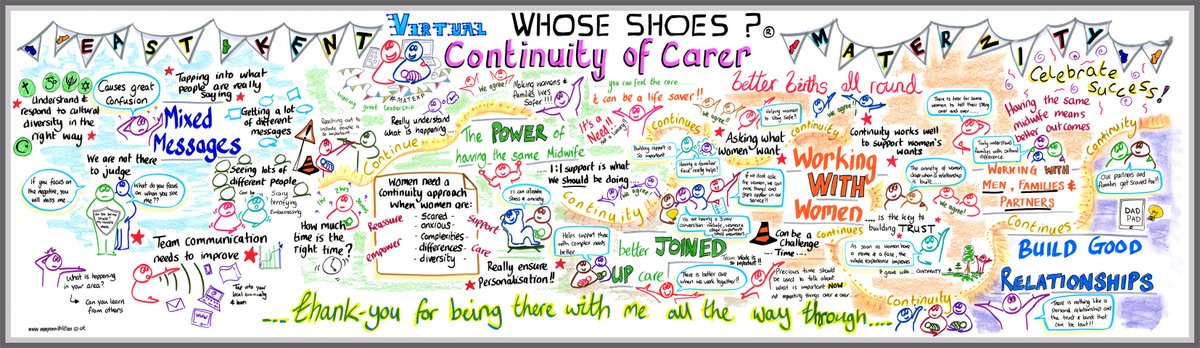 EAST KENT
VIRTUAL
WHOSE SHOES?®
MATERNITY
Continuity of Carer
#MATEXP
Causes great
confusion
Tapping into what
people are really
saying
Understand &
respond to cultural
diversity in the
right way
Mixed
Messages
Getting a lot
of different
messages
We are not there
to judge
If you focus on
the negative, you
will miss me..
What do you focus
on when you see
me??
Seeing lots of
different people
Can be
Scary
terrifying
Embarrassing
Team communication
needs to improve
How much
time is the
right time?
What is happening
in your area?
Can you learn
from others
Tap into your
local community
& team
www.newpossibilities.co.uk
great leadership
Reaching out to
include people is
so important
Really understand
what is happening....
we agree!
Making womans &
families lives
Safer!!!
Continue
The POWER of
having the same Midwife
Women need a
continuity approach
when women are:
- Scared
- anxious
- Complexities
- differences
- diversity
Reassure
empower
Support
Care
....1:1 support is what
We should be doing
It can alleviate
Stress & anxiety
Really ensure
Personalisation!!
Helps support those
with complex needs
better
you can feel the care
it can be a life saver!!
It's a
Need!!
Continues
Building rapport is
So important
Having a familiar
face really helps!
we agree!
Continuity
We are having a 3 way
conversation: midwives, women
& other important
staff members
better JOINED
UP care
Team Work is
so important!!
There is better care
when we work together!!
better births all round
we agree!
Helping women
to stay safe!!
we agree!
Asking what
women want
If we dont ask
the women, we can
miss things and
gaps appear in our
service!!
continuity
Working
WITH
Women
.... is the key to
building TRUST
Continues
Can be a
Challenge
... Time....
Precious time should
be used to talk about
what is important NOW
not repeating things over & over...
There is fear for some
women to tell their story
over and over....
Continuity works well
to support women's
wants
The anxiety of women
disappears as relationship
is built....
we agree!
As soon as women have
a name & a face, the
whole experience improves
it grows with.. CONTINUITY
Continuity
Celebrate
Success!
Having the same
midwife means
better outcomes
Truly understand
families with cultural
difference
WORKING WITH
MEN, FAMILIES &
PARTNERS
Continuity
Our partners and
families get scared too!!
Continues
DAD
PAD
BUILD GOOD
RELATIONSHIPS
There is nothing like a
personal relationship and
the trust & bonds that
can be built!!
.... thank-you for being there with me all the way through....